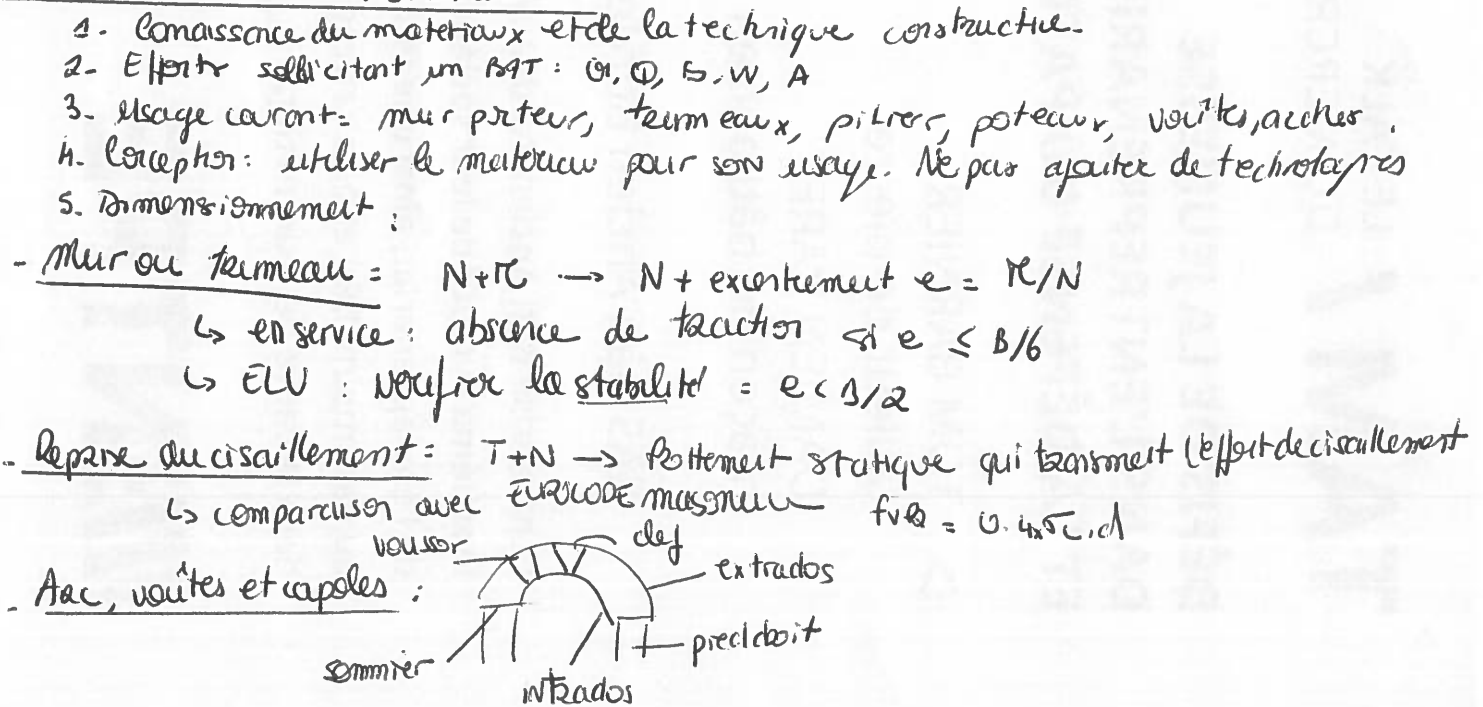 1. Connaissance du materiaux et de la technique constructive.
2- Efforts sollicitant un BAT : G, Q, S, W, A
3- Usage courant = mur porteur, trumeaux, piliers, poteaux, voûtes, arches.
4. Conception : utiliser le materiau pour son usage. Ne pas ajouter de technologies
5. Dimensionnement :
- Mur ou trumeau = N+M → N + excentrement e = M/N
↳ en service : absence de traction si e ≤ B/6
↳ ELU : verifier la stabilité = e < B/2
- Reprise du cisaillement = T+N → frottement statique qui transmet l'effort de cisaillement
↳ comparaison avec EUROCODE maçonnerie fvk = 0.4xσc,d
voussor clef
- Arc, voûtes et cupoles : extrados
sommier piedroit
intrados